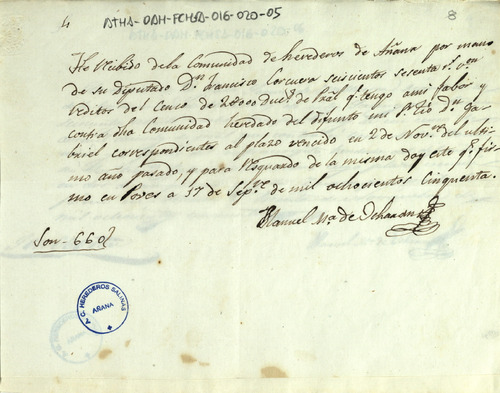 4 ATHA-DAH-FCHSA-016-020-05 8
He recibido de la Comunidad de herederos de Añana por mano
de su diputado Dn. Francisco Corcuera seiscientos sesenta rs. vn.
reditos del Censo de 28000 duc.s de Pral. qe. tengo a mi fabor y
contra dha Comunidad heredado del difunto mi Sr. tio Dn. Ga-
briel correspondientes al plazo vencido en 2 de Novre. del ulti-
mo año pasado, y para resguardo de la misma doy este qe. fir-
mo en Poves a 17 de Sepre. de mil ochocientos cinquenta.
Manuel Ma. de
Son-660
A. C. HEREDEROS SALINAS
AÑANA